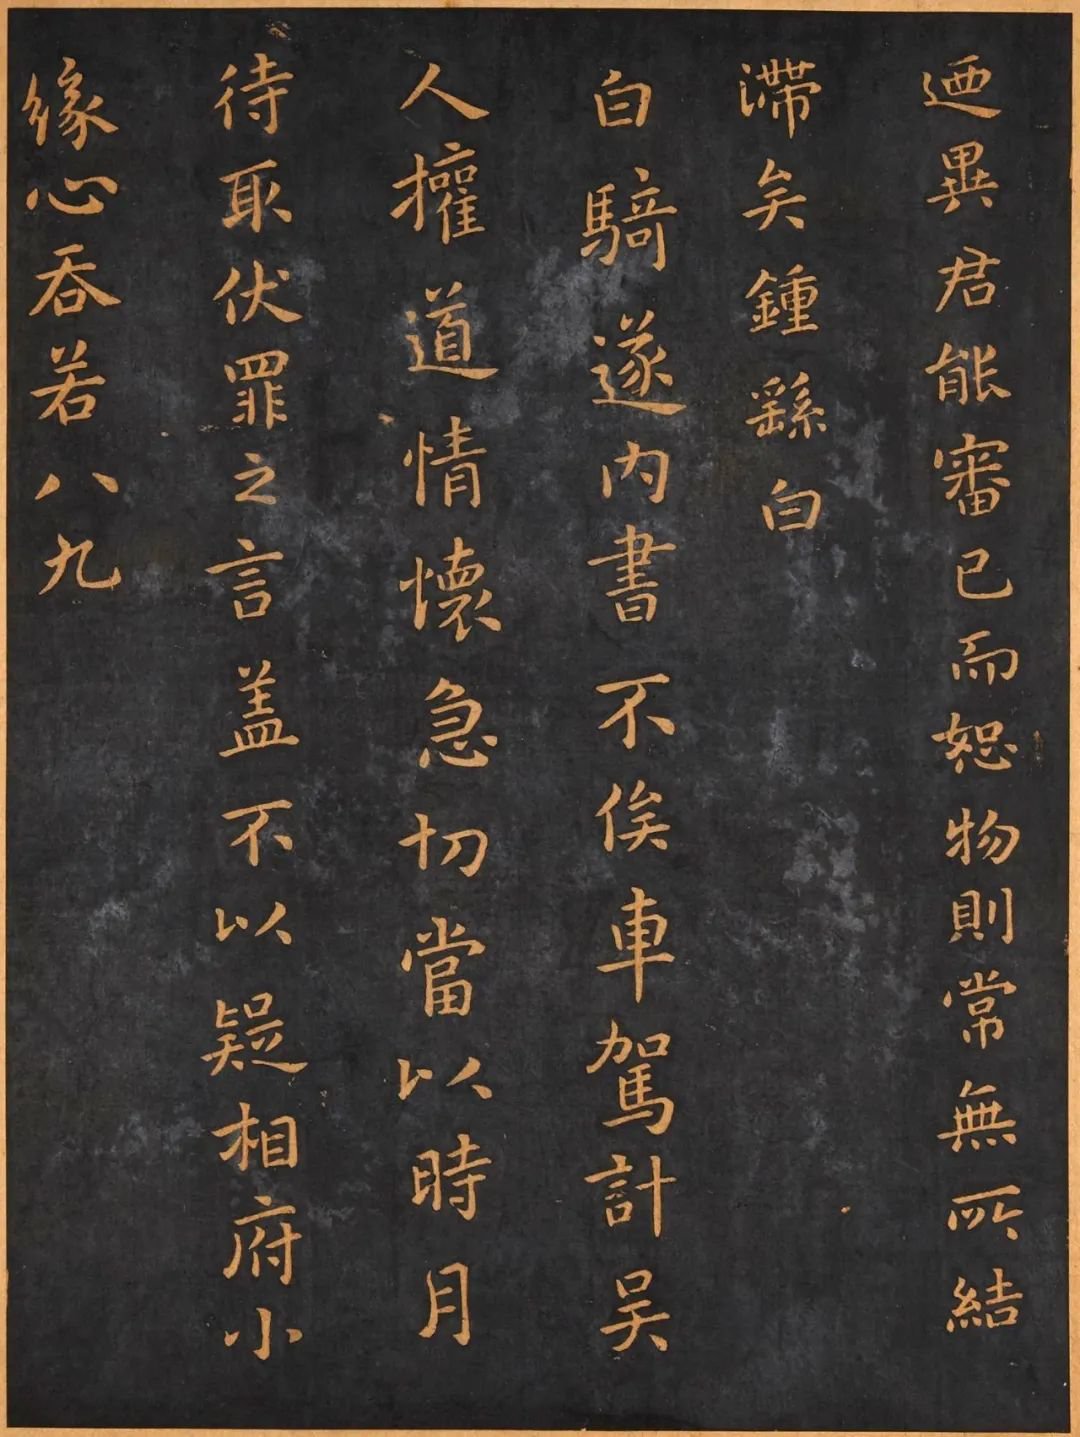 迺異君能審己而恕物則常無所結
滯矣鍾繇白
白騎遂内書不俟車駕計吴
人權道情懷急切當以時月
待取伏罪之言蓋不以疑相府小
緣心吞若八九